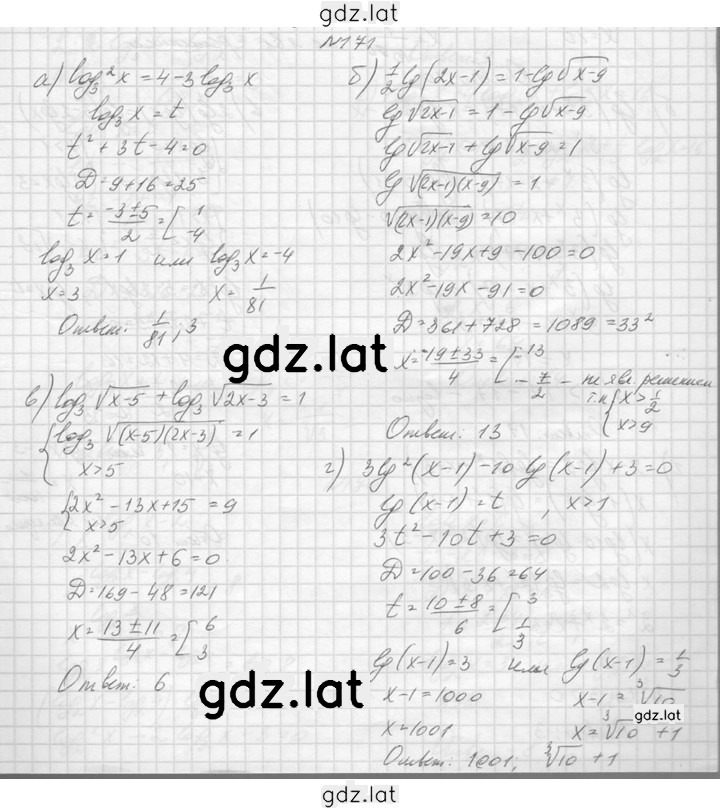 gdz.lat
№171
а) log₃²x = 4 - 3log₃ x
log₃ x = t
t² + 3t - 4 = 0
D = 9 + 16 = 25
t = (-3 ± 5)/2 = [ 1
-4
log₃ x = 1 или log₃ x = -4
x = 3 x = 1/81
Ответ: 1/81; 3
б) 1/2 lg(2x-1) = 1 - lg√(x-9)
lg√(2x-1) = 1 - lg√(x-9)
lg√(2x-1) + lg√(x-9) = 1
lg√((2x-1)(x-9)) = 1
√((2x-1)(x-9)) = 10
2x² - 19x + 9 - 100 = 0
2x² - 19x - 91 = 0
D = 361 + 728 = 1089 = 33²
x = (19 ± 33)/4 = [ 13
-7/2 - не явл. решением
т.к { x > 1/2
x > 9
Ответ: 13
gdz.lat
в) log₃ √(x-5) + log₃ √(2x-3) = 1
{ log₃ √((x-5)(2x-3)) = 1
x > 5
{ 2x² - 13x + 15 = 9
x > 5
2x² - 13x + 6 = 0
D = 169 - 48 = 121
x = (13 ± 11)/4 = [ 6
3
Ответ: 6
г) 3lg²(x-1) - 10 lg(x-1) + 3 = 0
lg(x-1) = t, x > 1
3t² - 10t + 3 = 0
D = 100 - 36 = 64
t = (10 ± 8)/6 = [ 3
1/3
lg(x-1) = 3 или lg(x-1) = 1/3
x - 1 = 1000 x - 1 = ³√10
x = 1001 x = ³√10 + 1
Ответ: 1001; ³√10 + 1
gdz.lat
gdz.lat
gdz.lat